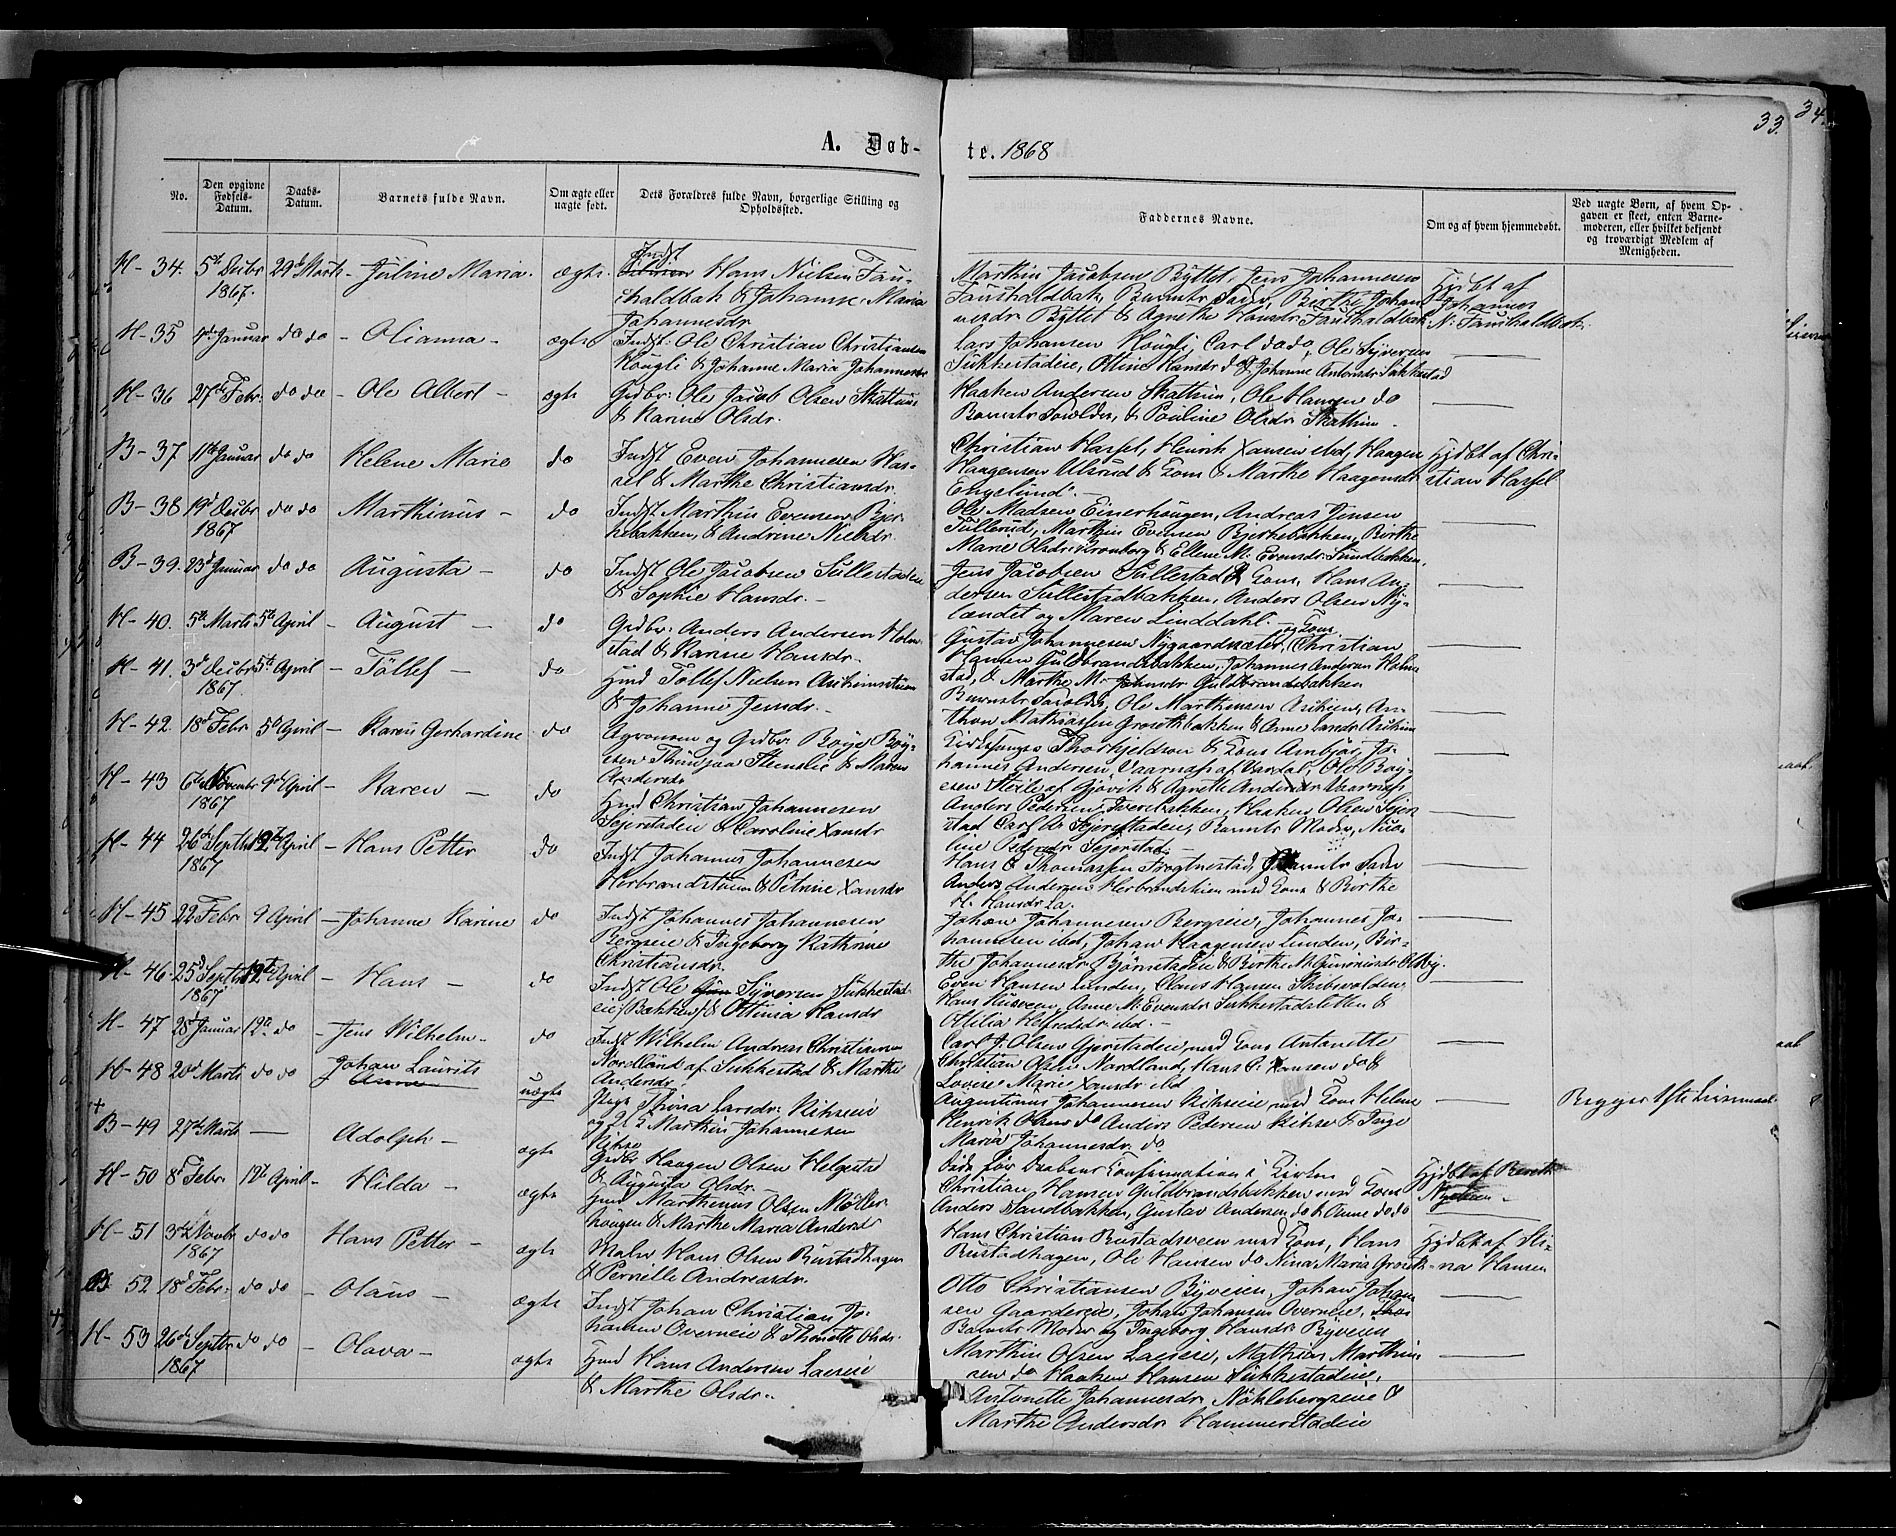 33.
34.
A. Døb-
te. 1868
No.
Den opgivne Fødsels-Datum.
Daabs-Datum.
Barnets fulde Navn.
Om ægte eller uægte født.
Dets Forældres fulde Navn, borgerlige Stilling og Opholdssted.
Faddernes Navne.
Om og af hvem hjemmedøbt.
Ved uægte Børn, af hvem Op-
gaven er skeet, enten Barne-
moderen, eller hvilket bekjendt
og troværdigt Medlem af
Menigheden.
H- 34. 5te Decbr 1867. 29de Marts - Juline Maria. ægte
Indst Hans Nielsen Fau-
chaldbak & Johanne Maria
Johannesdr
Marthin Jacobsen Byttet, Jens Johannesen
Fauchaldbak, Barnets Fader, Birthe Johan-
nesdr Byttet & Agnethe Hansdr Fauchaldbak
Hjdbt af
Johannes
N. Fauchaldbak.
H- 35 4de Januar do do - Olianna - ægte
Indst: Ole Christian Christiansen
Hougli & Johanne Maria Johannesdr
Lars Johansen Hougli, Carl do do, Ole Syversen
Sukkestadeie, Ottine Hansdr do & Johanne Andersdr Sukkestad
H- 36 27de Febr: do do - Ole Albert - ægte
Grdbr: Ole Jacob Olsen Skattum
& Karine Olsdr.
Haaken Andersen Skattum, Ole Hansen do
Barnets Forældre, & Pauline Olsdr Skattum.
B- 37 11te Januar do do Helene Marie do
Indst Even Johannesen Has-
sel & Marthe Christiansdr.
Christian Hassel, Henrik Hansen ibd, Haagen
Haagensen Ulsrud & Kone & Marthe Haagensdr
Engelund.
Hjdbt af Chri-
stian Hassel
B- 38 19d Decbr 1867 do do Marthinus - do
Indst Marthin Evensen Bjer-
kebakken, & Andrine Nielsdr.
Ole Madsen Einerhougen, Andreas Jensen
Tullerud, Marthin Evensen Bjerkebakken, Birthe
Marie Olsdr Kronborg & Ellene M. Evensdr Sundbakken.
B- 39. 23d Januar do do Augusta - do
Indst Ole Jacobsen Sullestadeie
& Sophie Hansdr. -
Jens Jacobsen Sullestad & Kone, Hans An-
dersen Sullestadbakken, Anders Olsen Ny-
lændet og Maren Linddahl.
H- 40. 5te Marts 5te April - August - do
Grdbr: Anders Andersen Holm-
stad & Karine Hansdr.
Gustav Johannesen Nygaardsæter, og Kone Christian
Hansen Guldbrandsbakken, Johannes Andersen Holm-
stad, & Marthe M. Johnsdr Guldbrandsbakken
H- 41. 3d Decbr 1867. 5te April - Tollef - do
Hmd Tollef Nielsen
& Johanne Jensdr. -
Barnets Forældre, Ole Marthinsen An-
thon Mathiassen & Anne Larsdr
H- 42. 18d Febr 5te April - Karen Gerhardine do
Agronom og Grdbr: Boye Boy-
esen & Maren
Andersdr
Thorkjeldson & Kone Arnbjør, Jo-
hannes Andersen, Vaarnæss af Vardal, Ole Boy-
esen af Gjøvik & Agnethe Andersdr Vaarnæss
H- 43 6te Novembr 1867 9de April - Karen - do
Hmd Christian Johannesen
Sejerstadeie & Caroline Hansdr
Anders Pedersen Haaken Olsen Sejer-
stad Carl A. Sejerstadeie, Barnets Moder,
Pedersdr Sejerstad.
H- 44 26de Septbr 1867 12te April - Hans Petter do
Indst Johannes Johannesen
Herbrandstuen & Petrine Hansdr
Hans & Thomassen Barnets Fader
Anders Andersen Herbrandstuen med Kone & Berthe
H. Hansdr
H- 45 22 Febr 9 April - Johanne Karine do
Indst Johannes Johannesen
Bergseie & Ingeborg Kathrine
Christiansdr.
Johan Johannesen Bergseie, Johannes Jo-
hannesen ibd, Johan Haagensen Lunden, Bir-
the Johannesdr Bjørnstadeie & Birthe M.
H- 46 25d Septbr 1867 12te April - Hans - do
Indst Ole Syversen Sukkestad-
eie (Bakken) & Ottinia Hansdr
Even Hansen Lunden, Claus Hansen
Hans Anne M. Evensdr Sukkestadsletten &
Othilia ibd. -
H- 47 28d Januar 12te do - Jens Wilhelm - do
Indst Wilhelm Andreas Christiansen
Nordland af Sukkestad & Marthe
Andersdr.
Carl J. Olsen Gjerstadeie med Kone Antonette
Christian Olsen Nordland, Hans P. Hansen do &
Lovise Marie Hansdr ibd
H- 48 20d Marts do do Johan Laurits uægte
Pige Thrina Larsdr: Kihseie
og Marthin Johannesen
Kihse
Augustinus Johannesen Kihseie med Kone Helene
Henrik Olsen do Anders Pedersen Kihse & Inge
Maria Johannesdr do
Begges 1ste Leiermaal
+
B- 49 27de Marts - Adolph - ægte
Grdbr Haagen Olsen Helgestad
& Augusta Olsdr. -
Døde før Daabens Confirmation i Kirken
H- 50 8d Febr. 12te April - Hilda - ægte
Hmd Marthinus Olsen Møller-
hougen & Marthe Maria Andersdr
Christian Hansen Guldbrandsbakken med Kone
Anders Sandbakken, Gustav Andersen do & Anne do do
Hjdbt af
H- 51 3die Novbr 1867 do do Hans Petter - ægte
Maler Hans Olsen Rustadhagen
& Pernille Andreasdr.
Hans Christian Rustadsveen med Kone, Hans
Rustadhagen, Ole Hansen do Nina Maria
Hjdbt af Sti-
na Hansen
B 52 18d Febr: do do - Olaus - ægte
Indst Johan Christian Jo-
hansen Overneie & Thonette Olsdr.
Otto Christiansen Byveien, Johan Johan-
sen Gaardereie, Johan Johansen Overneie,
Barnets Moder og Ingeborg Hansdr Byveien
H- 53 26de Septbr 1867 do do - Olava - ægte
Hmd Hans Andersen Laeseie
& Marthe Olsdr..
Marthin Olsen Laeseie, Mathias Marthin-
sen do Haaken Hansen Sukkestadeie,
Antonette Johannesdr Nøklebergseie &
Marthe Andersdr Hammerstadeie